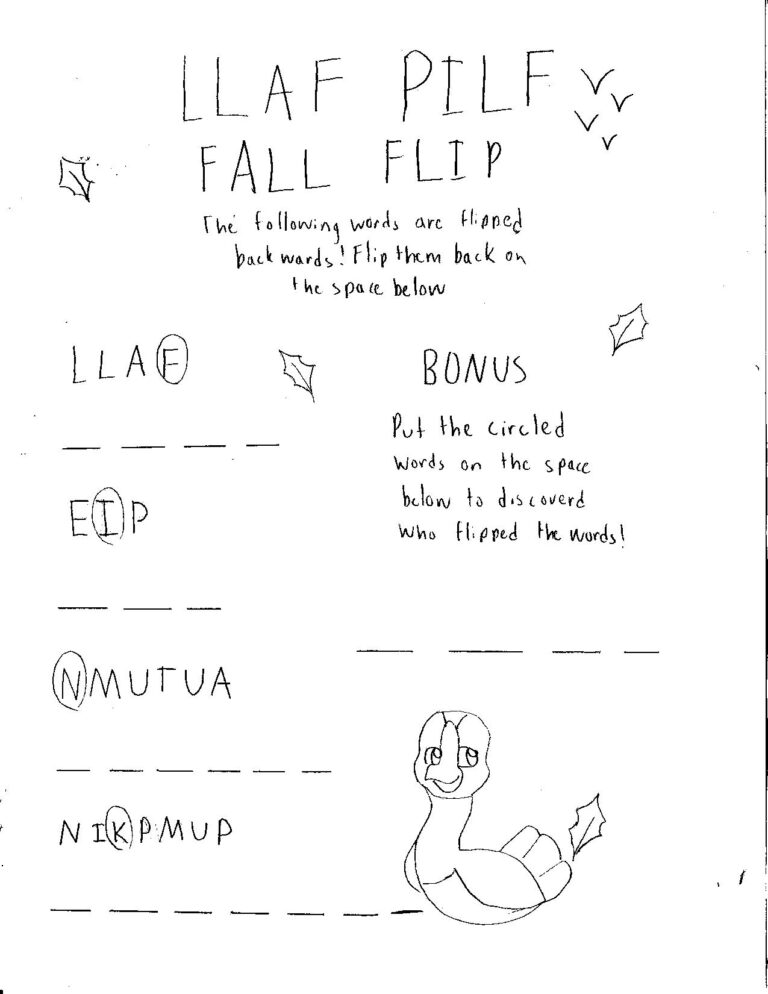 LLAF PILF
FALL FLIP
The following words are flipped
backwards! Flip them back on
the space below
LLAF
EIP
NMUTUA
NIKPMUP
BONUS
Put the circled
words on the space
below to discoverd
who flipped the words!